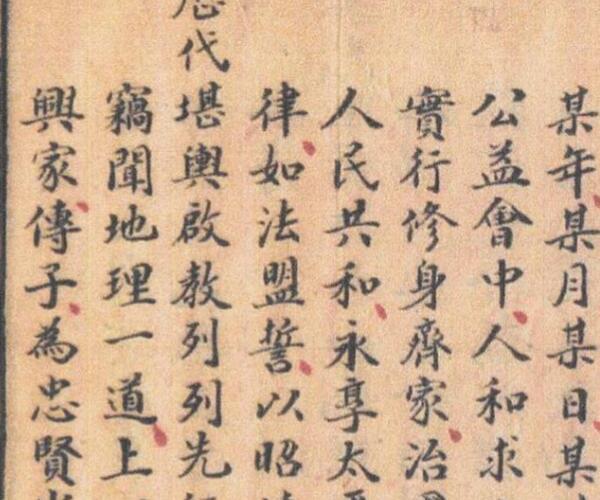 某年某月某日某
公益會中人和求
實行修身齊家治
人民共和永享太
律如法盟誓以昭
歷代堪輿啟教列列先
竊聞地理一道上
興家傳子為忠賢